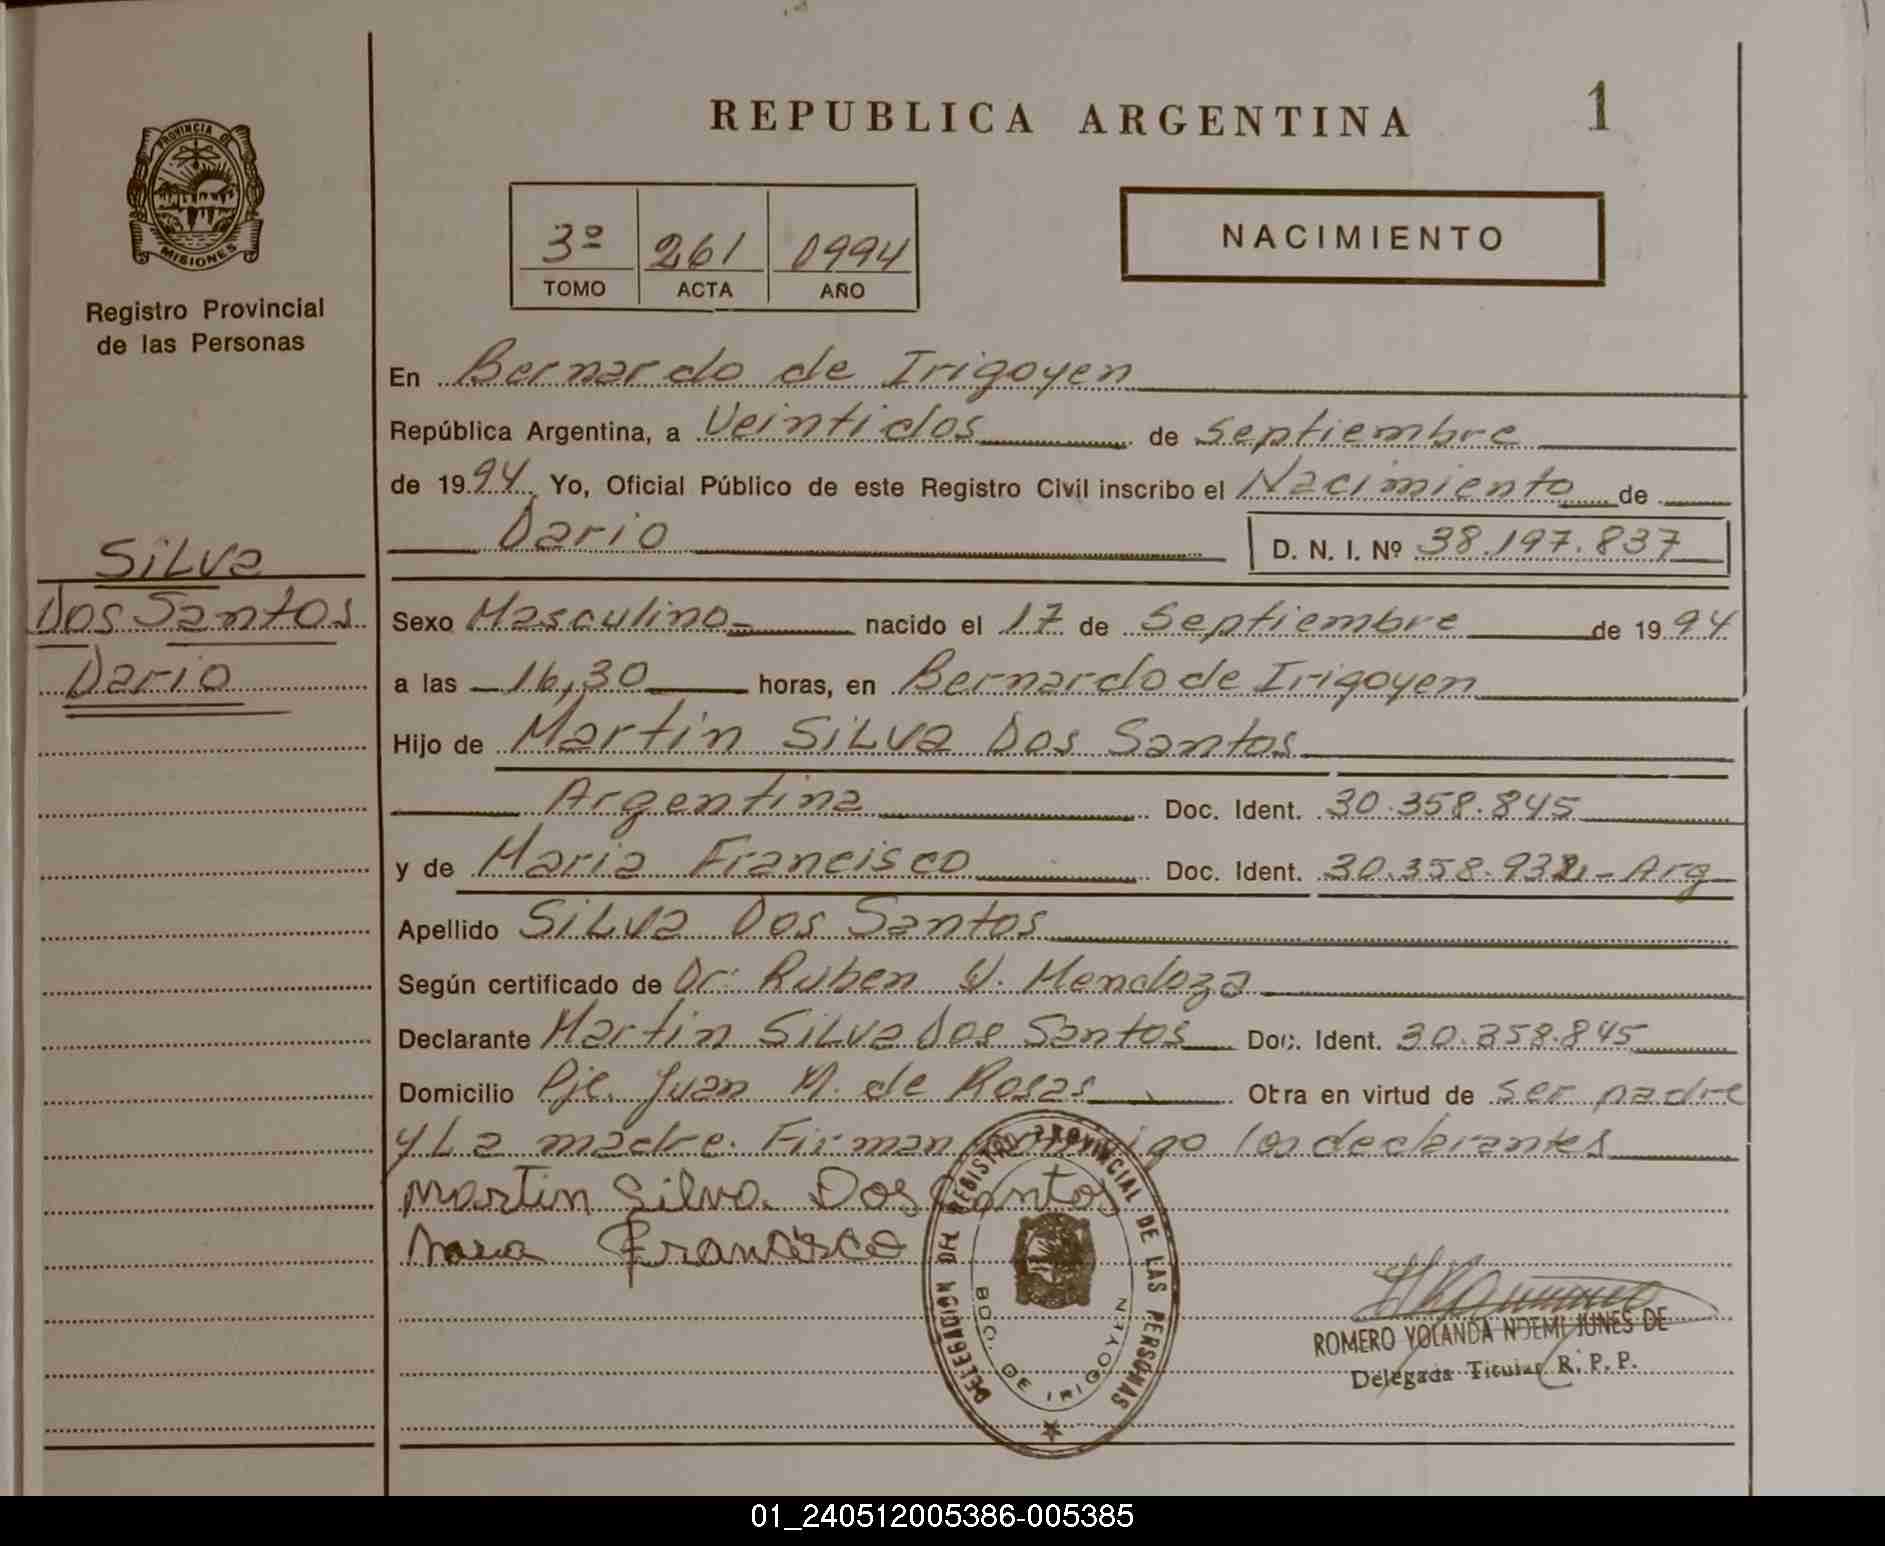 REPUBLICA ARGENTINA
1
PROVINCIA DE
MISIONES
Registro Provincial
de las Personas
3º 261 0994
TOMO ACTA AÑO
NACIMIENTO
En Bernardo de Irigoyen
República Argentina, a Veintidos de Septiembre
de 1994 Yo, Oficial Público de este Registro Civil inscribo el Nacimiento de
Dario D. N. I. Nº 38.197.837
Silva
Dos Santos
Dario
Sexo Masculino nacido el 17 de Septiembre de 1994
a las 16,30 horas, en Bernardo de Irigoyen
Hijo de Martin Silva Dos Santos
Argentina Doc. Ident. 30.358.845
y de Maria Francisco Doc. Ident. - Arg
Apellido Silva Dos Santos
Según certificado de Dr. Ruben W. Mendoza
Declarante Martin Silva Dos Santos Doc. Ident. 30.358.845
Domicilio Pje. Juan M. de Rosas Obra en virtud de ser padre
y La madre. Firman conmigo los declarantes
Martin Silva Dos Santos
Maria Francisco
DELEGACION DEL REGISTRO PROVINCIAL DE LAS PERSONAS
BDO. DE IRIGOYEN
ROMERO YOLANDA NOEMI JUNES DE
Delegada Titular R. P. P.
01_240512005386-005385